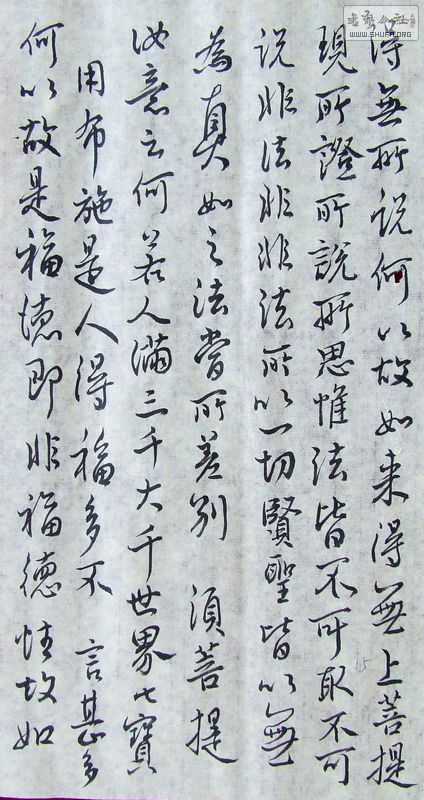 得無所说何以故如来得無上菩提
現所證所説所思惟法皆不可取不可
说非法非非法所以一切賢聖皆以無
為真如之法當所差别 須菩提
汝意云何若人滿三千大千世界七寶
用布施是人得福多不 言甚多
何以故是福德即非福德性故如
WWW.SHUFA.ORG